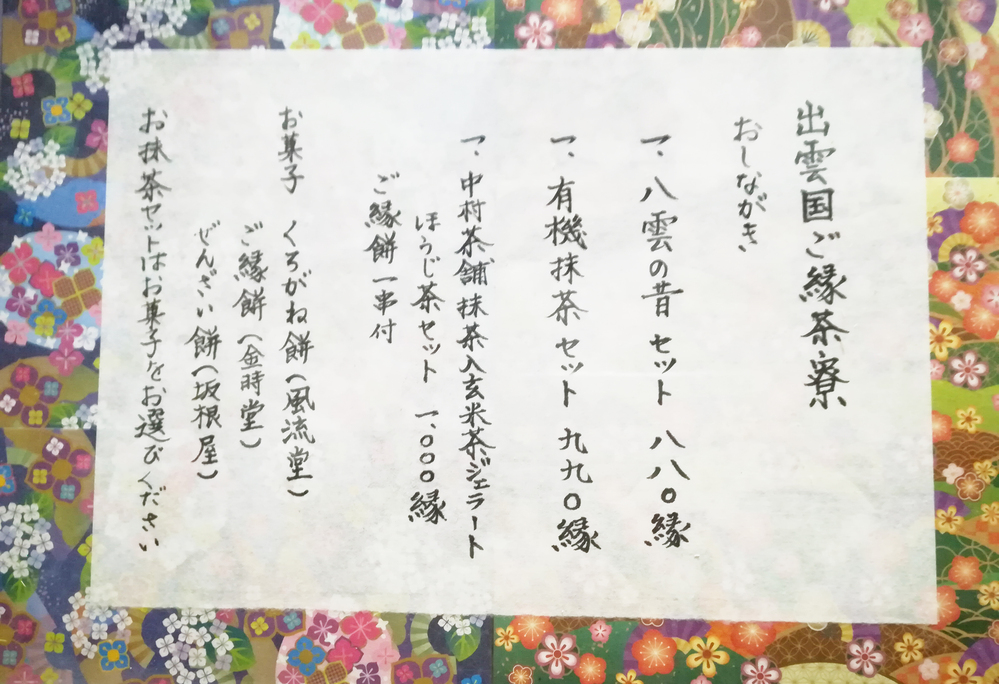 出雲国ご縁茶寮
おしながき
一、八雲の昔セット 八八〇縁
一、有機抹茶セット 九九〇縁
一、中村茶舗抹茶入玄米茶ジェラート
ほうじ茶セット 一、〇〇〇縁
ご縁餅一串付
お菓子 くろがね餅(風流堂)
ご縁餅(金時堂)
ぜんざい餅(坂根屋)
お抹茶セットはお菓子をお選びください